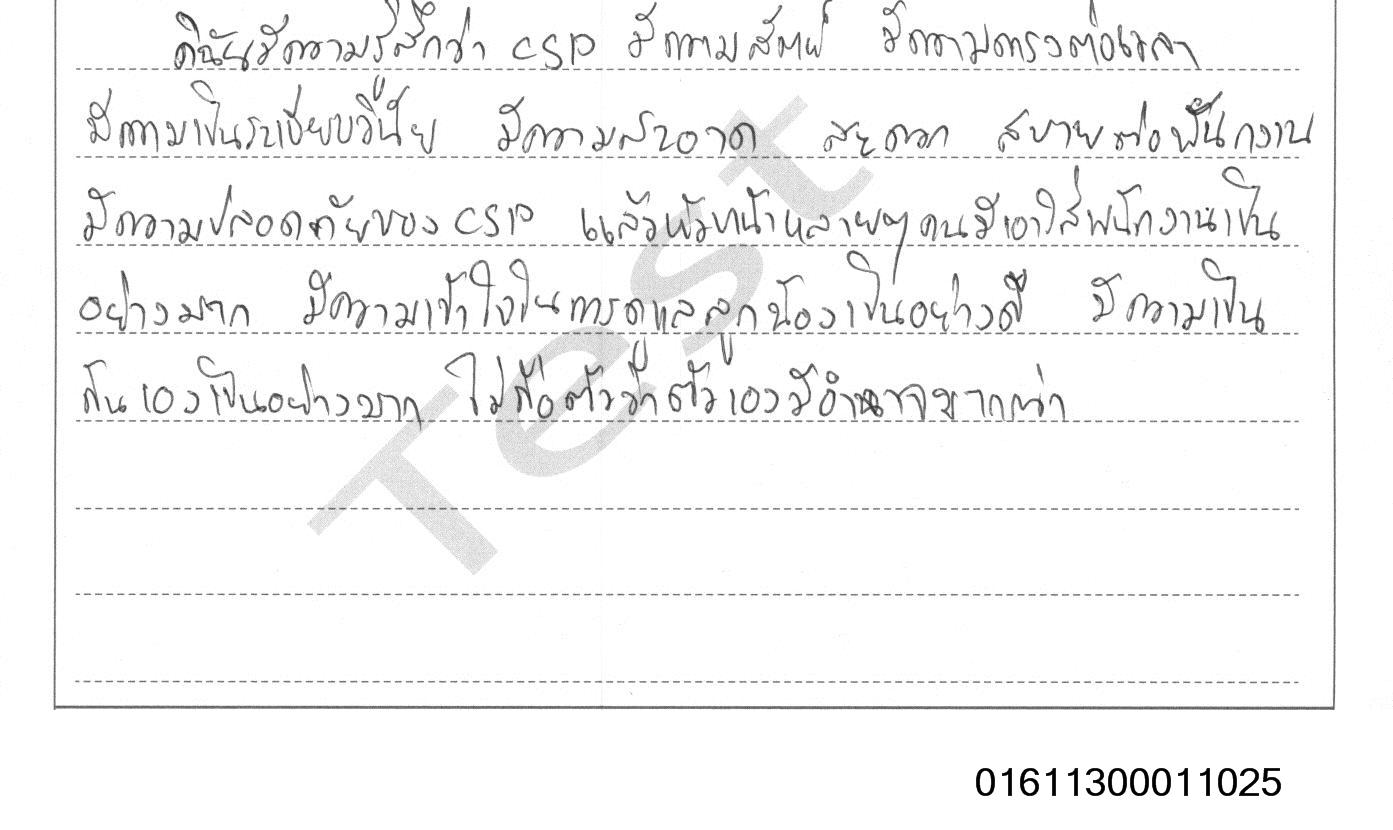 ดิฉันมีความรู้สึกว่า CSP มีความสัตย์ มีความตรงต่อเวลา
มีความเป็นระเบียบวินัย มีความสะอาด สะดวก สบายต่อพนักงาน
มีความปลอดภัยของ CSP แล้วหัวหน้าหลายๆ คนมีเอาใส่พนักงานเป็น
อย่างมาก มีความเข้าใจในการดูแลลูกน้องเป็นอย่างดี มีความเป็น
กันเองเป็นอย่างมาก ไม่ถือตัวว่าตัวเองมีอำนาจมากกว่า
Test
01611300011025